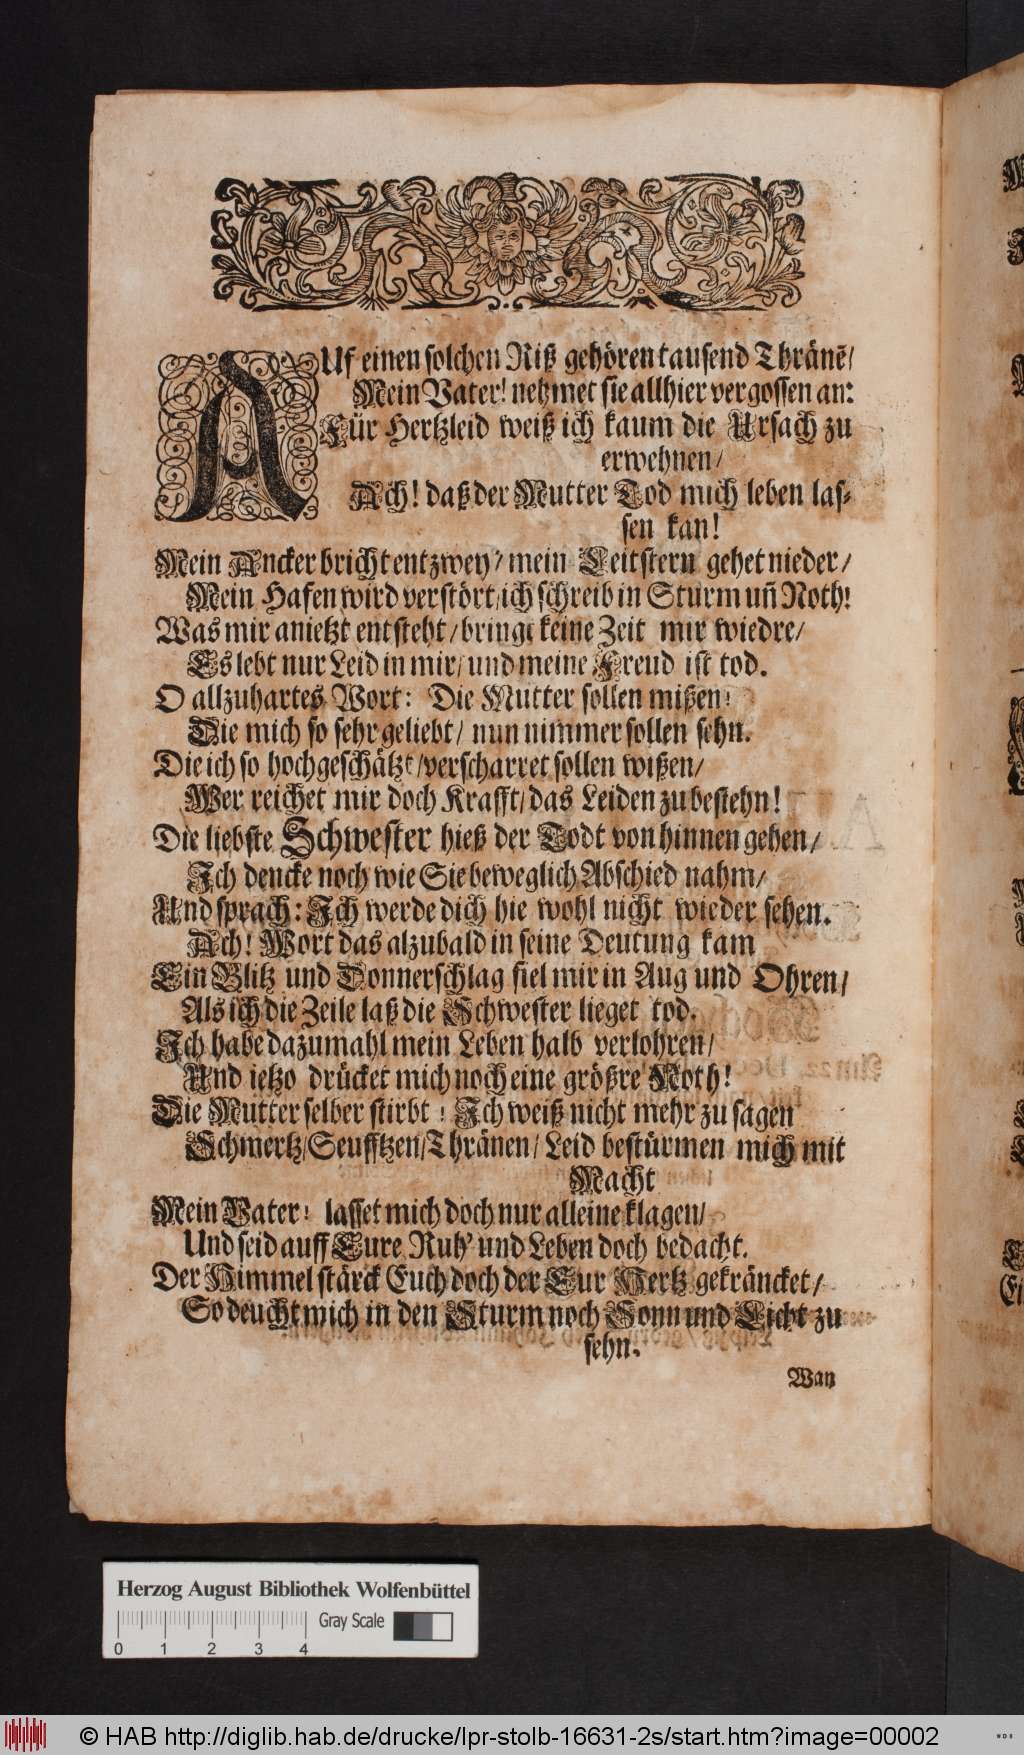 AUf einen solchen Riß gehören tausend Thränẽ/
Mein Vater! nehmet sie allhier vergossen an:
Für Hertzleid weiß ich kaum die Ursach zu
erwehnen/
Ach! daß der Mutter Tod mich leben las-
sen kan!
Mein Ancker bricht entzwey/ mein Leitstern gehet nieder/
Mein Hafen wird verstört/ ich schreib in Sturm uñ Noth!
Was mir anietzt entsteht/ bringt keine Zeit mir wiedre/
Es lebt nur Leid in mir/ und meine Freud ist tod.
O allzuhartes Wort: Die Mutter sollen mißen!
Die mich so sehr geliebt/ nun nimmer sollen sehn.
Die ich so hochgeschätzt/ verscharret sollen wißen/
Wer reichet mir doch Krafft/ das Leiden zubestehn!
Die liebste Schwester hieß der Todt von hinnen gehen/
Ich dencke noch wie Sie beweglich Abschied nahm/
Und sprach: Ich werde dich hie wohl nicht wieder sehen.
Ach! Wort das alzubald in seine Deutung kam
Ein Blitz und Donnerschlag fiel mir in Aug und Ohren/
Als ich die Zeile laß die Schwester lieget tod.
Ich habe dazumahl mein Leben halb verlohren/
Und ietzo drücket mich noch eine größre Noth!
Die Mutter selber stirbt! Ich weiß nicht mehr zu sagen
Schmertz/ Seufftzen/ Thränen/ Leid bestürmen mich mit
Macht
Mein Vater! lasset mich doch nur alleine klagen/
Und seid auff Eure Ruh' und Leben doch bedacht.
Der Himmel stärck Euch doch der Eur Hertz gekräncket/
So deucht mich in den Sturm noch Sonn und Licht zu
sehn.
Wan
Herzog August Bibliothek Wolfenbüttel
Gray Scale
0 1 2 3 4
© HAB http://diglib.hab.de/drucke/lpr-stolb-16631-2s/start.htm?image=00002